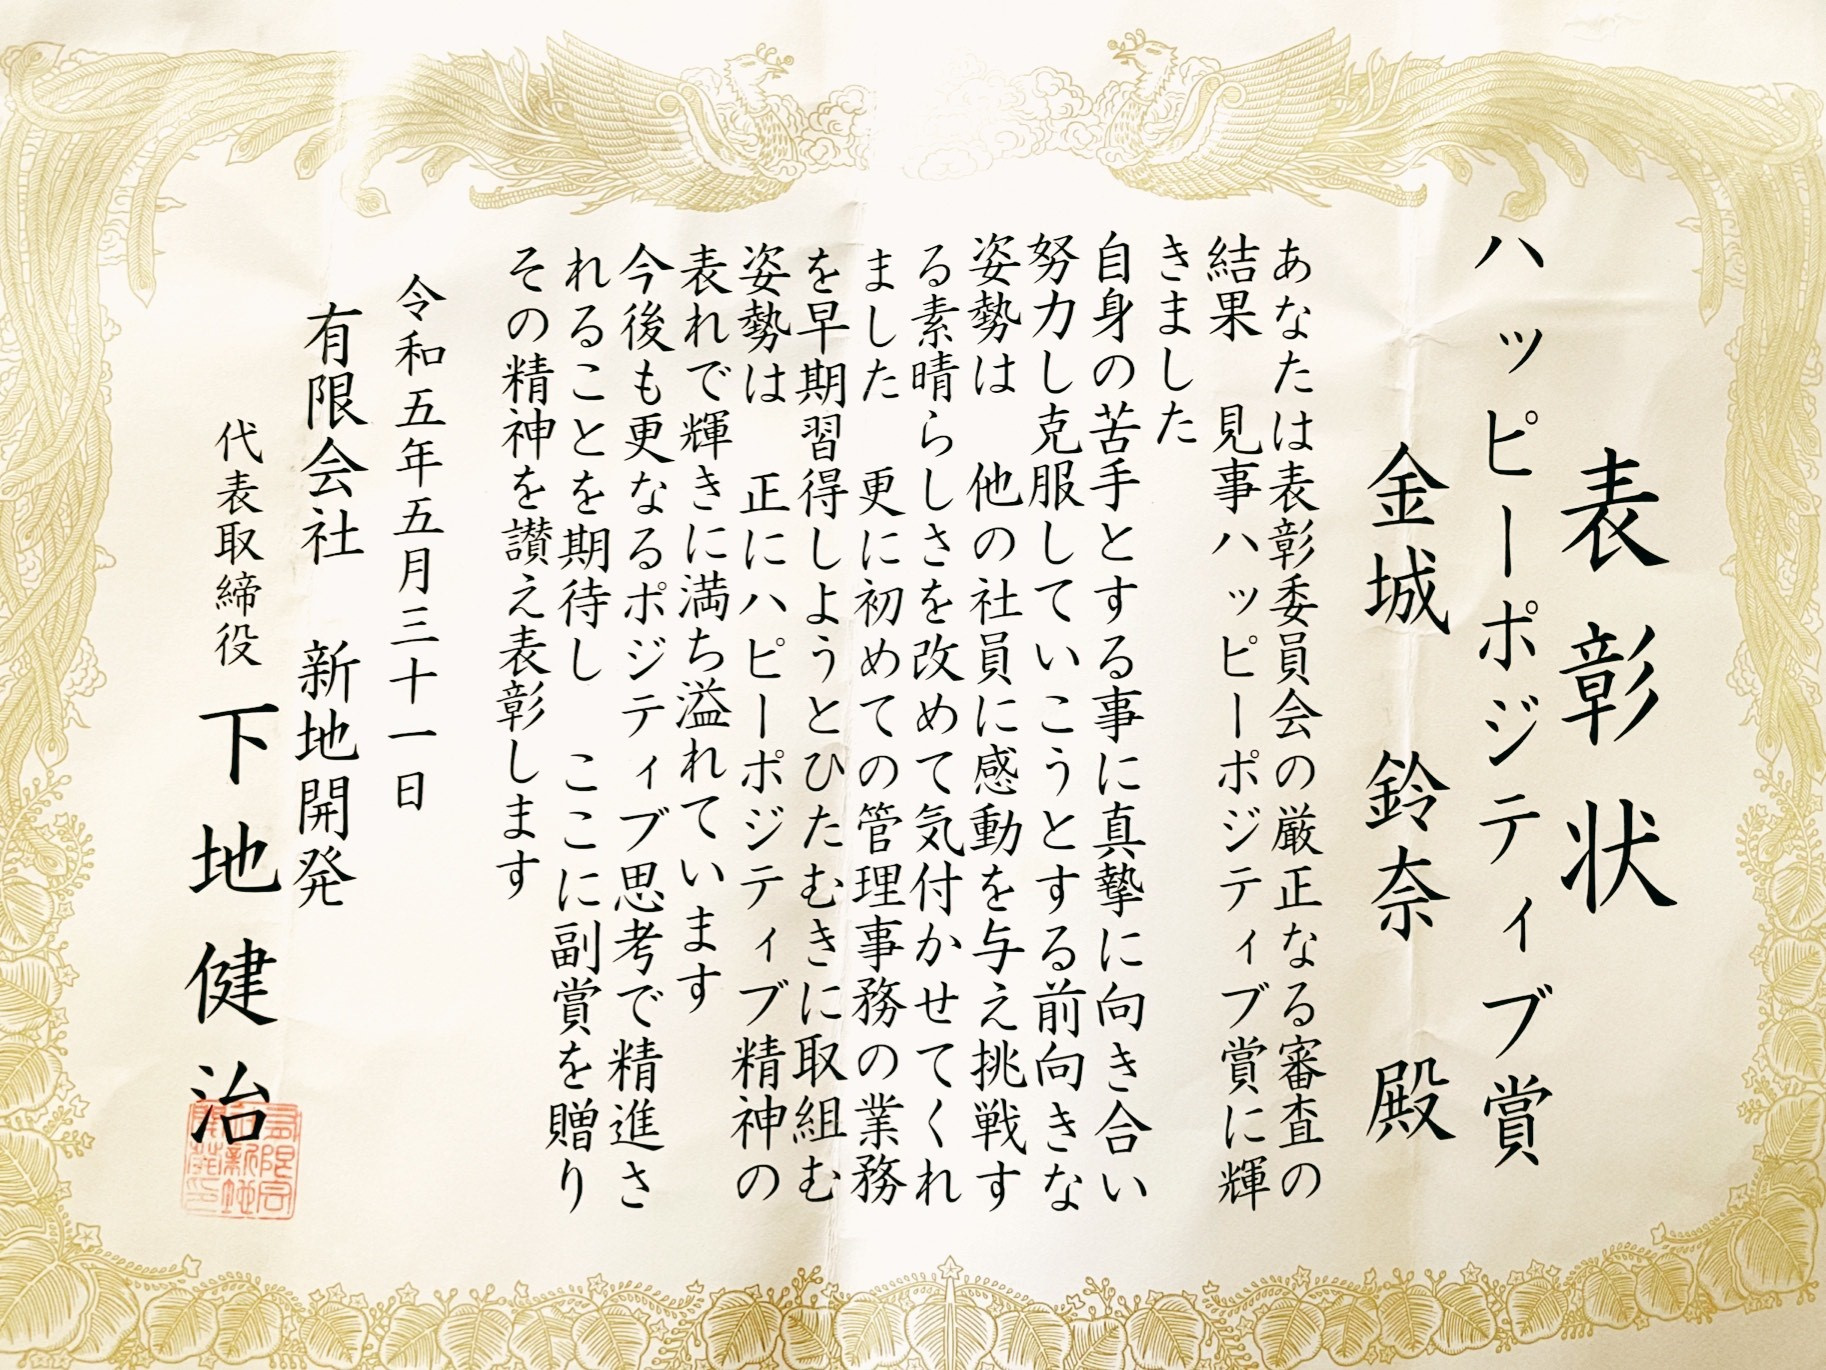 表彰状
ハッピーポジティブ賞
金城　鈴奈　殿
あなたは表彰委員会の厳正なる審査の
結果　見事ハッピーポジティブ賞に輝
きました
自身の苦手とする事に真摯に向き合い
努力し克服していこうとする前向きな
姿勢は　他の社員に感動を与え挑戦す
る素晴らしさを改めて気付かせてくれ
ました　更に初めての管理事務の業務
を早期習得しようとひたむきに取組む
姿勢は　正にハピーポジティブ精神の
表れで輝きに満ち溢れています
今後も更なるポジティブ思考で精進さ
れることを期待し　ここに副賞を贈り
その精神を讃え表彰します
令和五年五月三十一日
有限会社　新地開発
代表取締役　下地健治